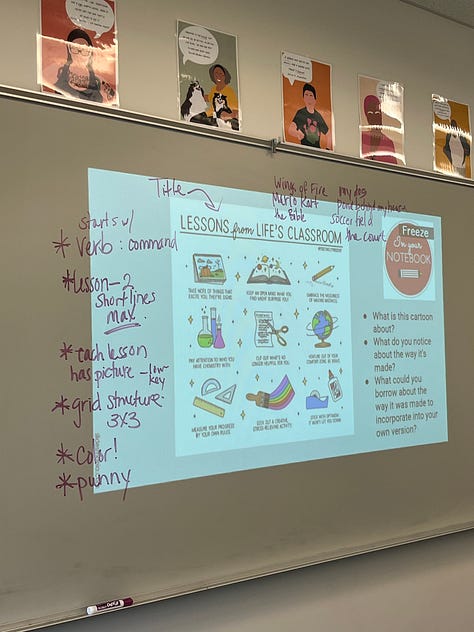 Title
Wings of Fire
my dog
Mario Kart
pond behind my house
the Bible
soccer field
the court
LESSONS from LIFE'S CLASSROOM
starts w/
* verb: command
* lesson - 2
short lines
max!
* each lesson
has picture - low-
key
* grid structure
3x3
* color!
* punny
TAKE NOTE OF THINGS THAT
EXCITE YOU, THEY'RE SIGNS
KEEP AN OPEN MIND. WHAT YOU
FIND MIGHT SURPRISE YOU!
EMBRACE THE MESSINESS
OF MAKING MISTAKES
PAY ATTENTION TO WHO YOU
HAVE CHEMISTRY WITH
CUT OUT WHAT'S NO
LONGER HELPFUL FOR YOU
VENTURE OUT OF YOUR
COMFORT ZONE
MEASURE YOUR PROGRESS
BY YOUR OWN RULES
SEEK OUT A CREATIVE,
STRESS-RELIEVING ACTIVITY
STICK WITH OPTIMISM,
IT WON'T LET YOU DOWN
Freeze
In your
NOTEBOOK
• What is this cartoon
about?
• What do you notice
about the way it's
made?
• What could you
borrow about the
way it was made to
incorporate into your
own version?
EXPO